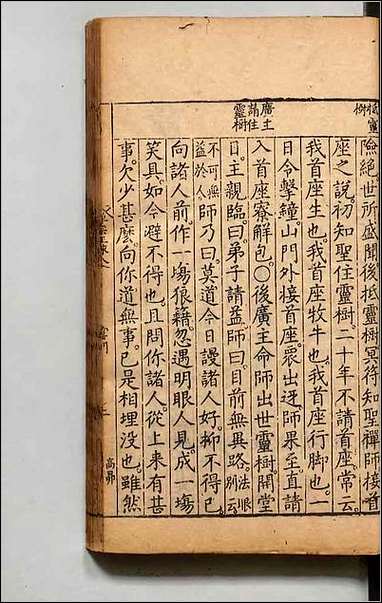 抵靈
樹
險絕世所盛聞後抵靈樹冥符知聖禪師接首
座之說初知聖住靈樹二十年不請首座常云
我首座生也我首座牧牛也我首座行脚也一
日令擊鐘山門外接首座眾出迓師果至直請
廣主
請住
靈樹
入首座寮解包〇後廣主命師出世靈樹開堂
日主親臨曰弟子請益師曰目前無異路法眼
別云
不可無
益於人師乃曰莫道今日謾諸人好抑不得已
向諸人前作一場狼藉忽遇明眼人見成一場
笑具如今避不得也且問你諸人從上來有甚
事欠少甚麽向你道無事已是相埋没也雖然